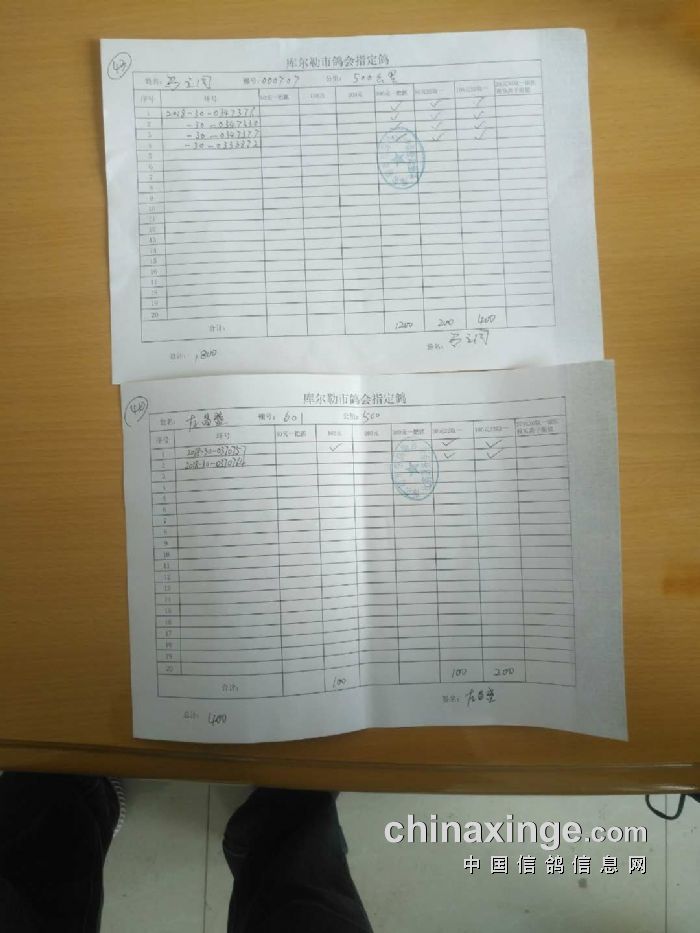 43
库尔勒市鸽会指定鸽
姓名： 棚号：000707 公里：500公里
序号 环号 50元一把抓 100元 200元 300元一把抓 50元22取一 100元22取一
1 2018-30-0347371 ✓ ✓ ✓
2 -30-0347330 ✓ ✓ ✓
3 -30-0347377 ✓ ✓ ✓
4 -30-0332372 ✓ ✓ ✓
5
6
7
8
9
10
11
12
13
14
15
16
17
18
19
20
合计： 1200 200 400
总计： 1800 签名：
库尔勒市鸽会指定鸽
姓名： 棚号：601 公里：500
序号 环号 50元一把抓 100元 200元 300元一把抓 50元22取一 100元22取一
1 2018-30-0370757 ✓ ✓ ✓
2 2018-30-0370764 ✓ ✓
3
4
5
6
7
8
9
10
11
12
13
14
15
16
17
18
19
20
合计： 100 100 200
总计： 400 签名：
chinaxinge.com
中国信鸽信息网